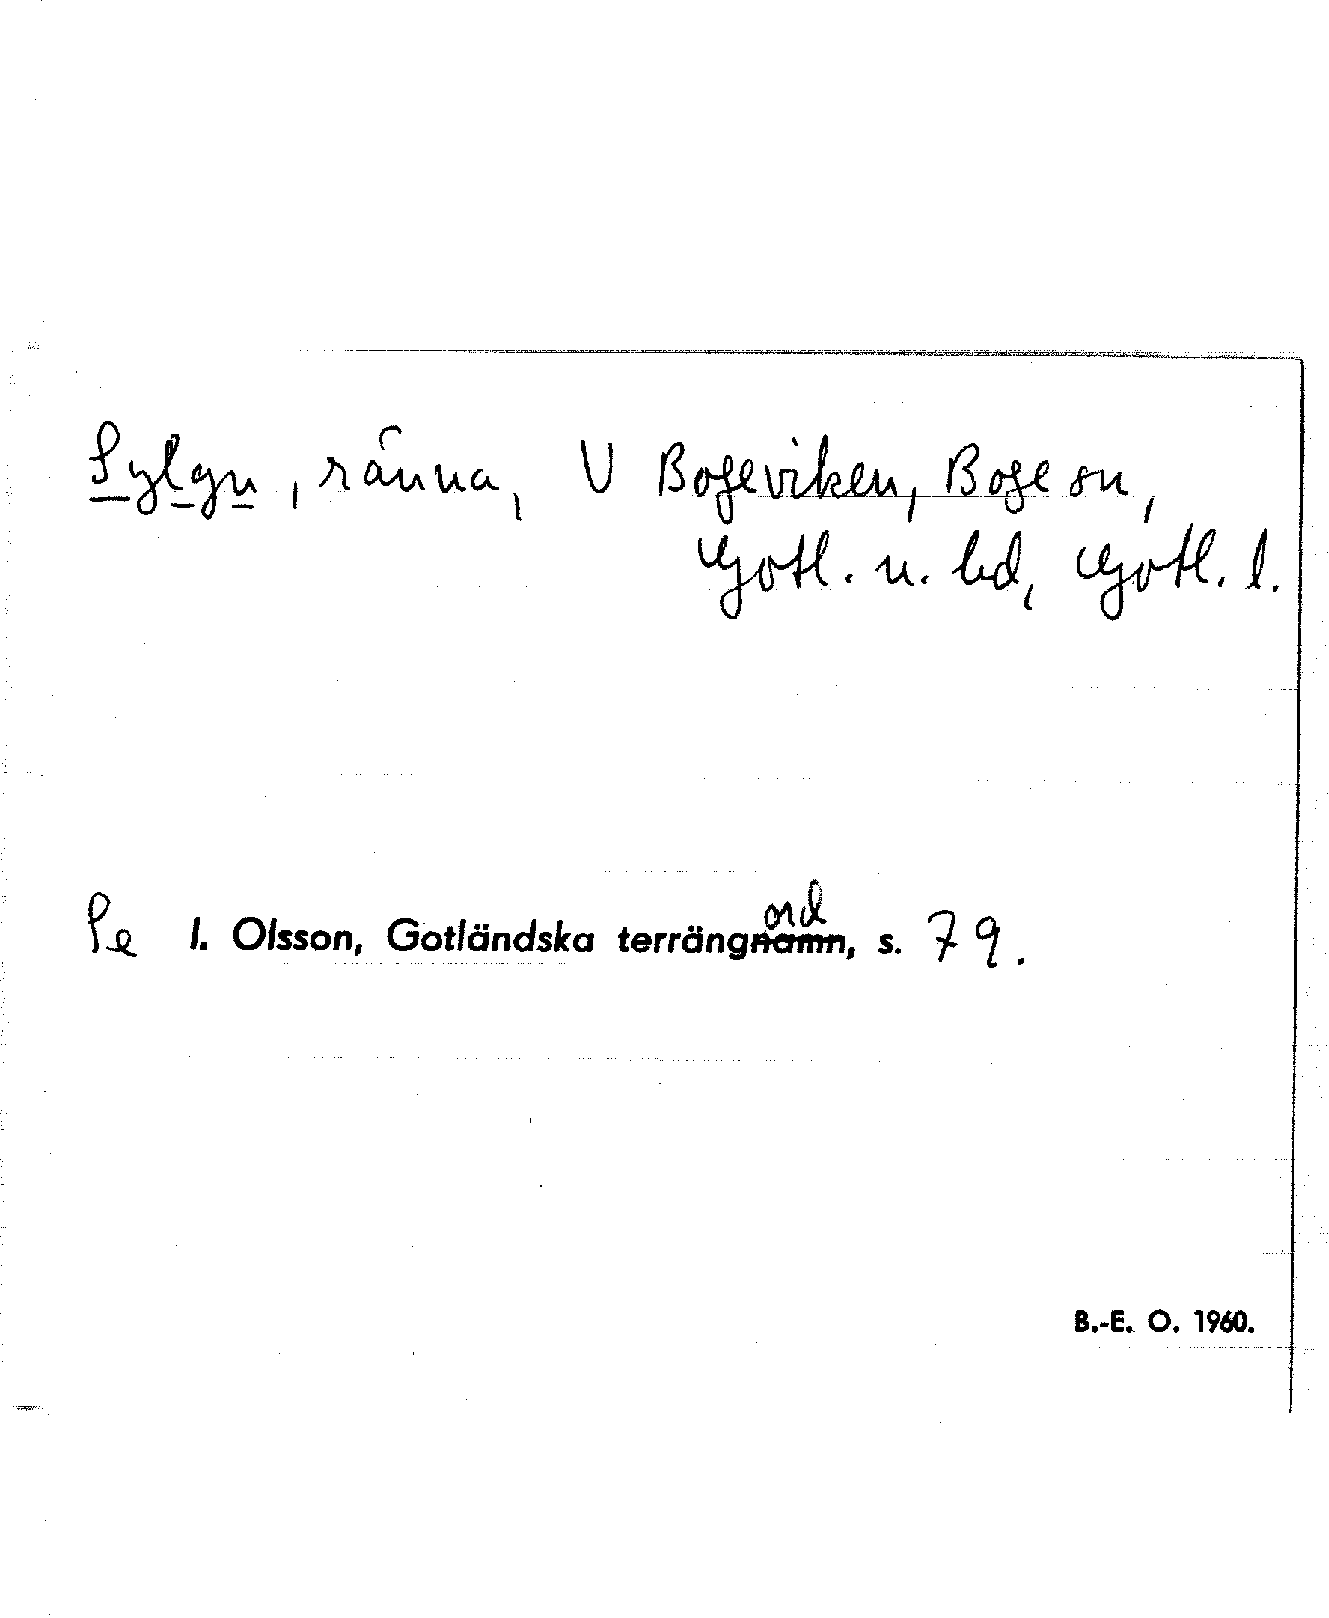 Sylgu, ränna, V Bogeviken, Boge sn,
Gotl. n. hd, Gotl. l.
Se I. Olsson, Gotländska terrängnamn ord, s. 79.
B.-E. O. 1960.